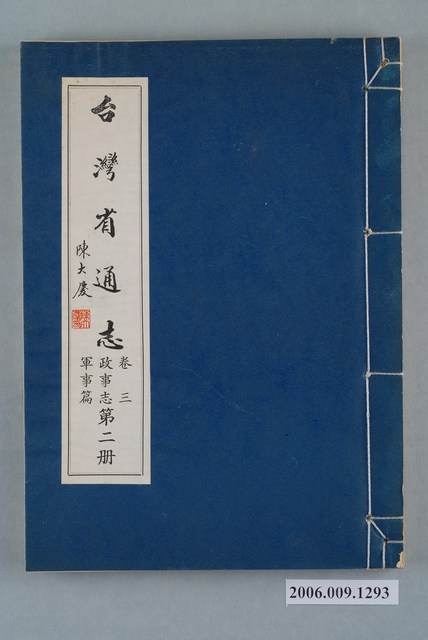 台灣省通志
陳大慶
卷三
政事志
軍事篇
第二册
2006.009.1293